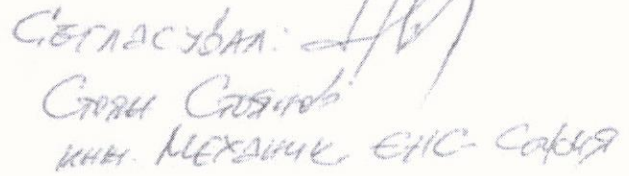 Съгласувал:
Стоян Стоянов
инж. Механик ЕНС-София